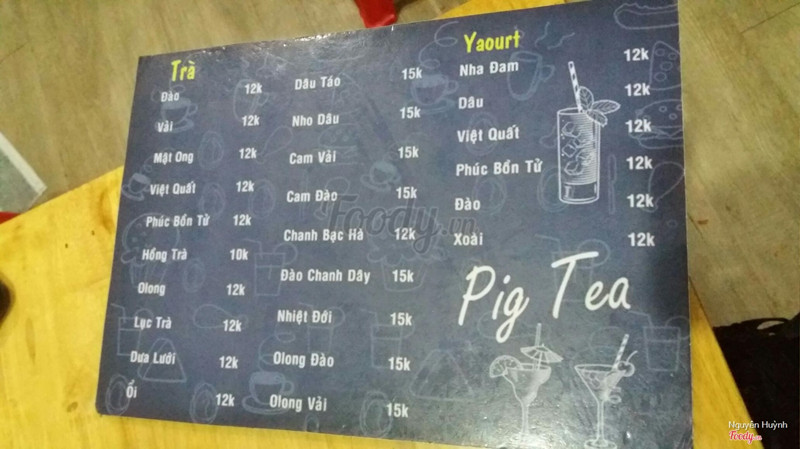 Trà
Đào 12k
Vải 12k
Mật Ong 12k
Việt Quất 12k
Phúc Bồn Tử 12k
Hồng Trà 10k
Olong 12k
Lục Trà 12k
Dưa Lưới 12k
Ổi 12k
Dâu Táo 15k
Nho Dâu 15k
Cam Vải 15k
Cam Đào 15k
Chanh Bạc Hà 12k
Đào Chanh Dây 15k
Nhiệt Đới 15k
Olong Đào 15k
Olong Vải 15k
Yaourt
Nha Đam 12k
Dâu 12k
Việt Quất 12k
Phúc Bồn Tử 12k
Đào 12k
Xoài 12k
Pig Tea
Foody.vn
Nguyễn Huỳnh
Foody.vn